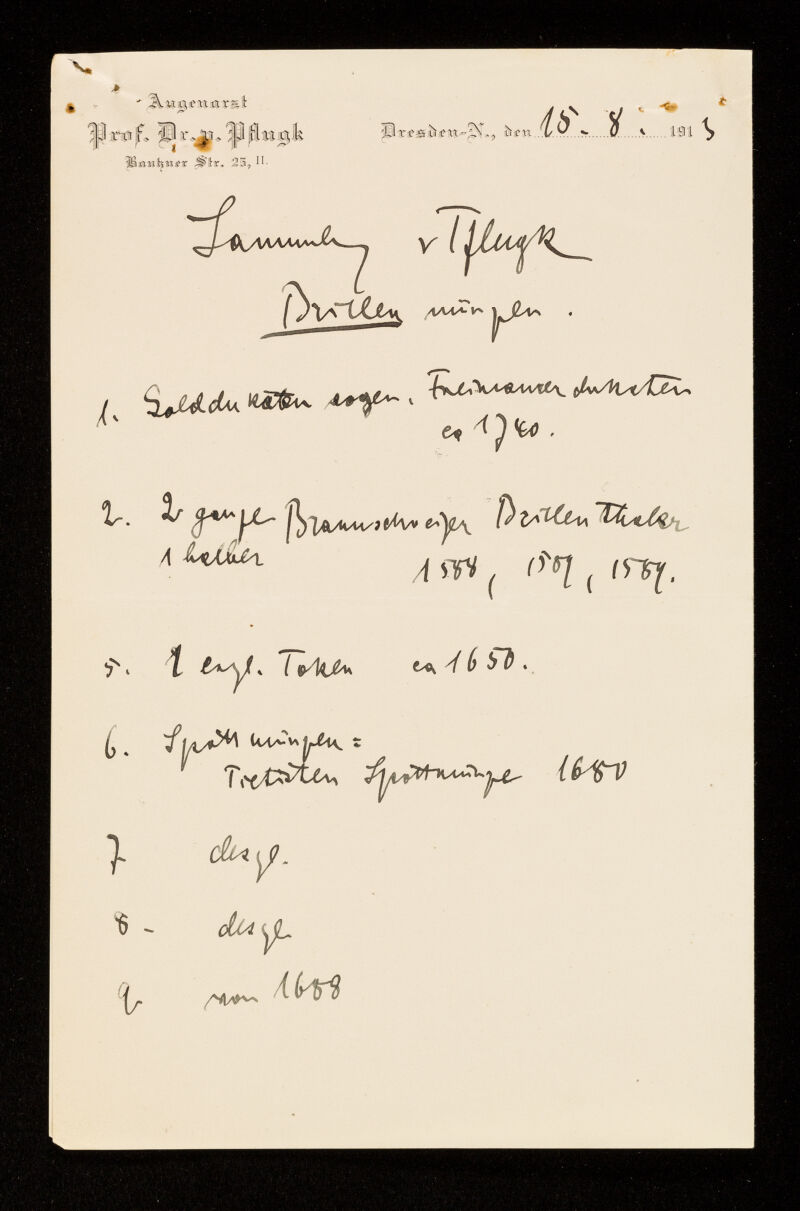 Augenarzt
Prof. Dr. v. Pflugk
Bautzner Str. 25, II.
Dresden-N., den 15. 8. 1913
Sammlung v Pflugk
Brillen münzen.
1. Golddukaten sogen. Freimaurer dukaten
ca 1740.
2. 2 ganze Braunschweiger Brillen thaler
1 halber 1588, 1589, 1589.
5. 1 engl. Token ca 1650.
6. Spottmünzen =
Pietisten Spottmünze 1680
7 desgl.
8 - desgl.
9 von 1688